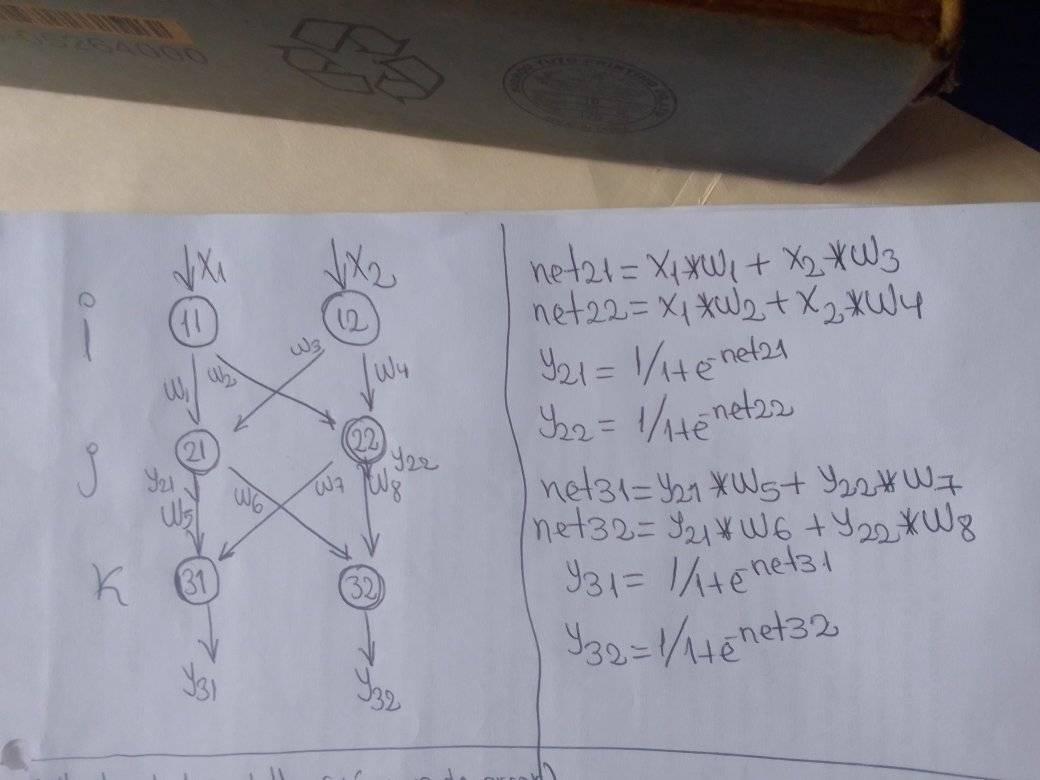 X1
X2
i
11
12
W1
W2
W3
W4
j
21
22
y21
y22
W5
W6
W7
W8
K
31
32
y31
y32
net21 = X1*W1 + X2*W3
net22 = X1*W2 + X2*W4
y21 = 1/1+e-net21
y22 = 1/1+e-net22
net31 = y21*W5 + y22*W7
net32 = y21*W6 + y22*W8
y31 = 1/1+e-net31
y32 = 1/1+e-net32